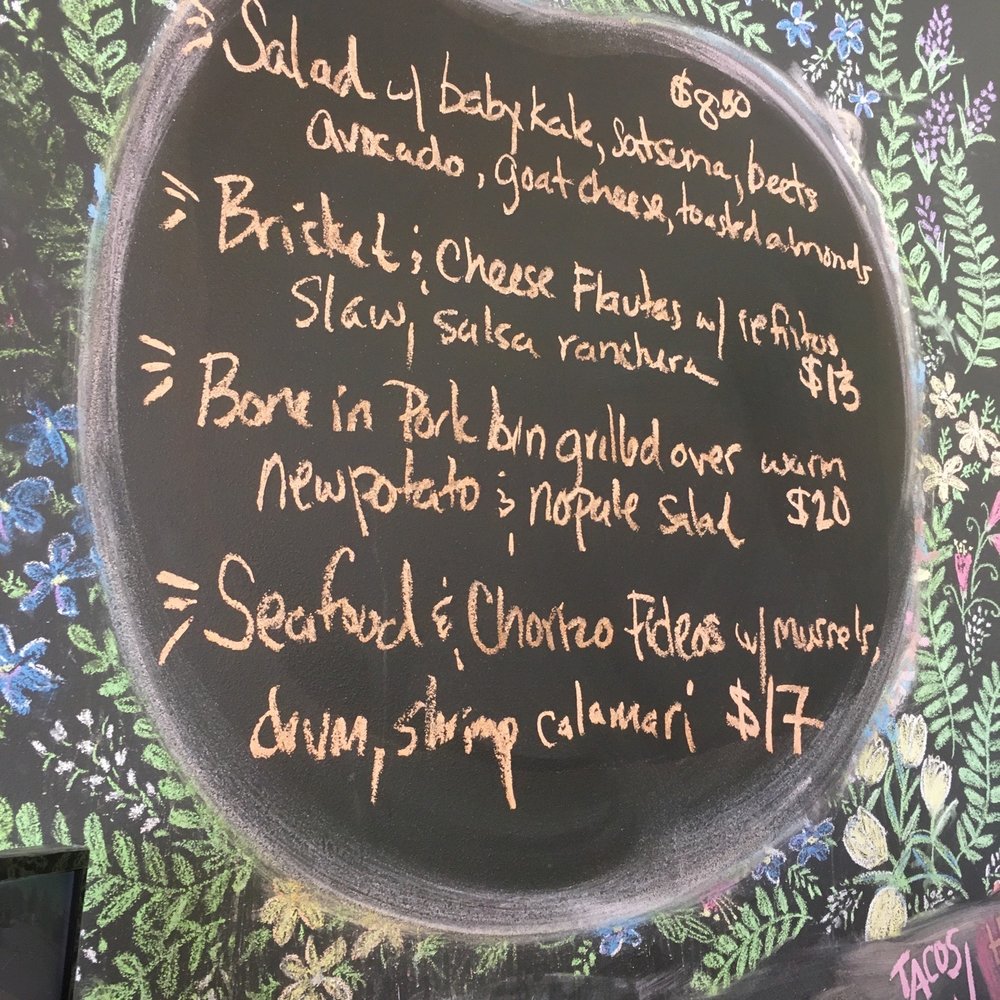 Salad w/ baby kale, satsuma, beets $8.50
avocado, goat cheese, toasted almonds
Brisket & Cheese Flautas w/ refritos,
Slaw, salsa ranchera $13
Bone in Pork loin grilled over warm
new potato & nopale salad $20
Seafood & Chorizo Fideos w/ mussels,
drum, shrimp calamari $17
TACOS/